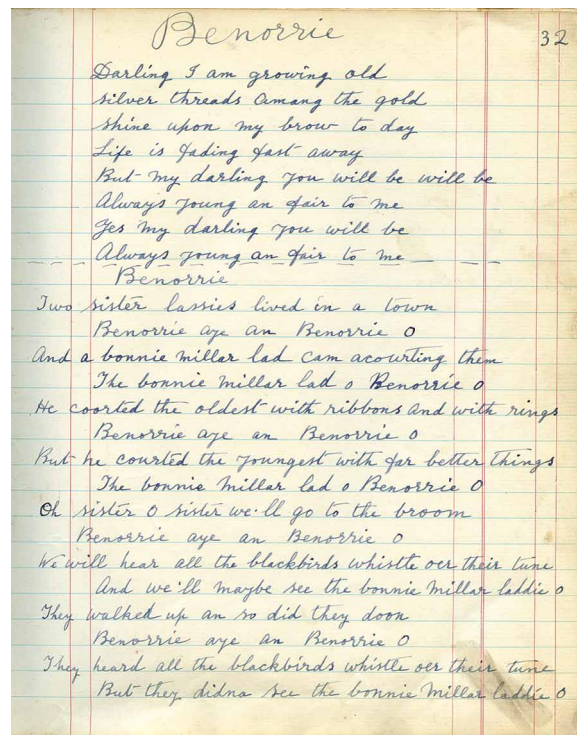 Benorrie
32
Darling I am growing old
silver threads amang the gold
shine upon my brow to day
Life is fading fast away
But my darling you will be will be
Always young an fair to me
Yes my darling you will be
Always young an fair to me
Benorrie
Two sister lassies lived in a town
Benorrie aye an Benorrie O
And a bonnie millar lad cam acourting them
The bonnie millar lad o Benorrie O
He coorted the oldest with ribbons and with rings
Benorrie aye an Benorrie O
But he courted the youngest with far better things
The bonnie millar lad o Benorrie O
Oh sister O sister we'll go to the broom
Benorrie aye an Benorrie O
We will hear all the blackbirds whistle oer their tune
And we'll maybe see the bonnie millar laddie O
They walked up an so did they doon
Benorrie aye an Benorrie O
They heard all the blackbirds whistle oer their tune
But they didna see the bonnie millar laddie O